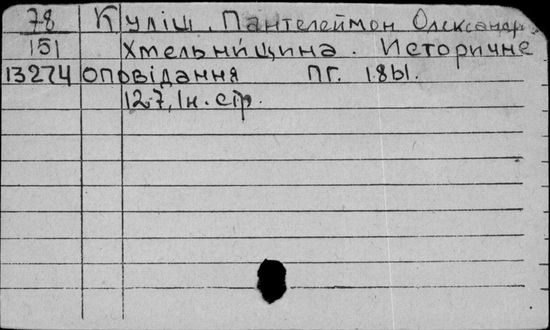 78 Куліш, Пантелеймон Олександр.
151 Хмельнищина. Историчне
13274 оповідання ПГ. 1861.
127, Iн. стр.